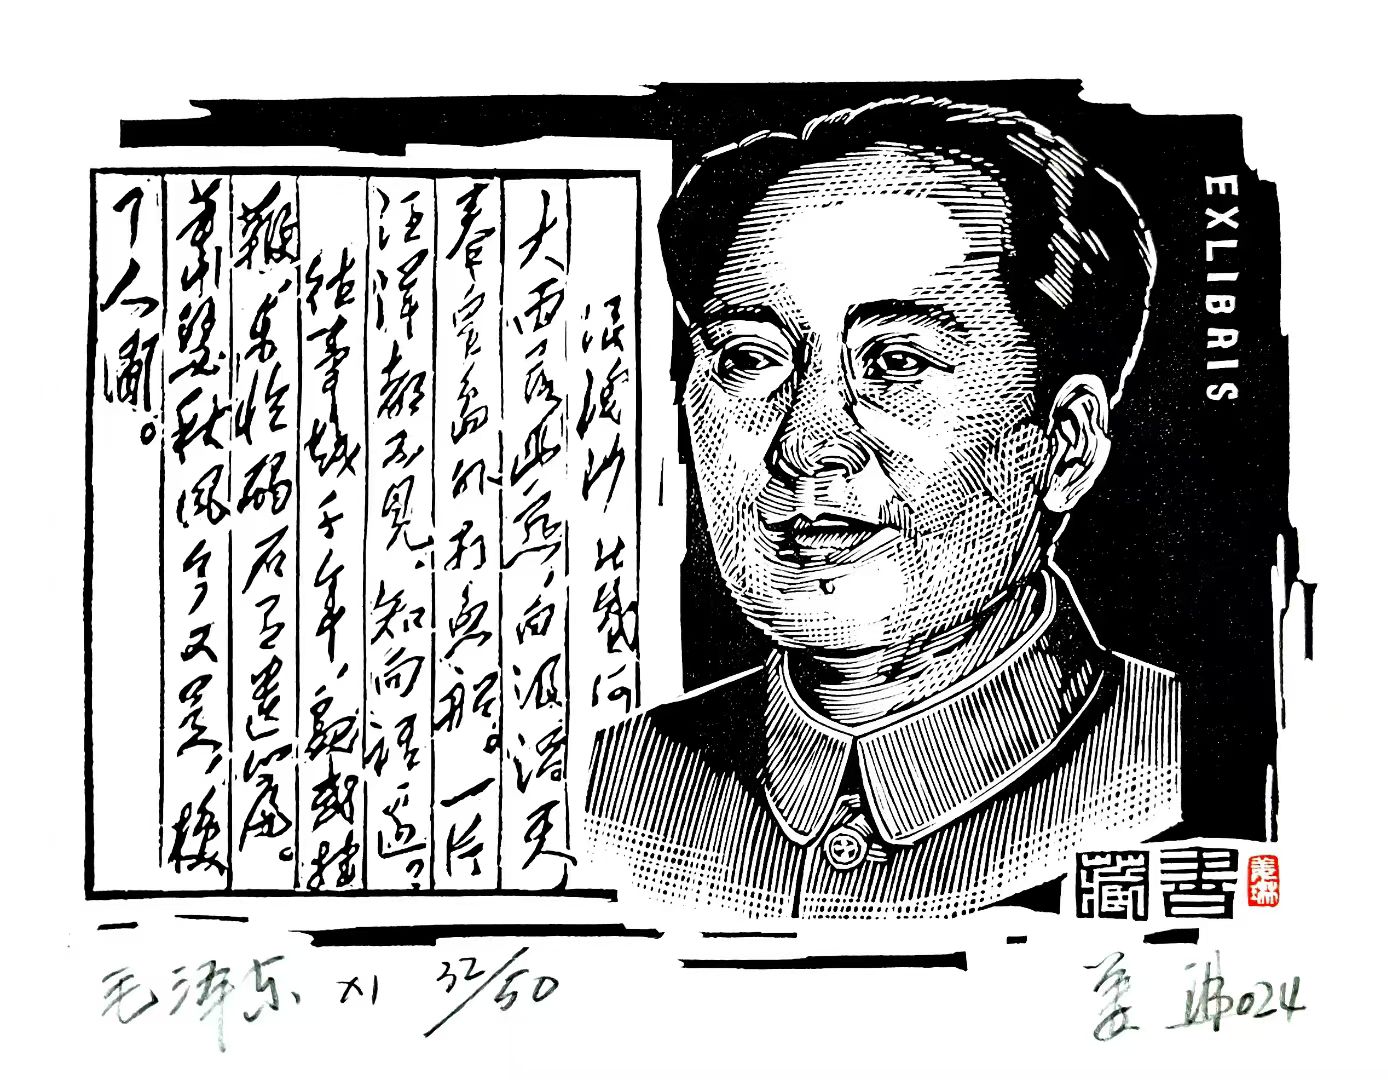 EXLIBRIS
浪淘沙 北戴河
大雨落幽燕,白浪滔天
秦皇岛外打鱼船。一片
汪洋都不见,知向谁边?
往事越千年,魏武挥
鞭,东临碣石有遗篇。
萧瑟秋风今又是,换
了人间。
藏書
毛泽东 X1 32/50
姜 2024